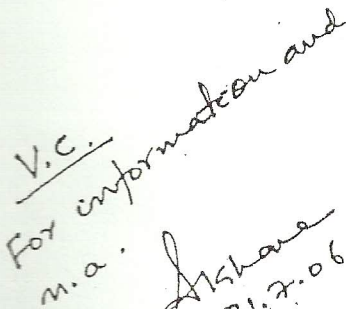 V.C.
For information and
n.a.
21.7.06